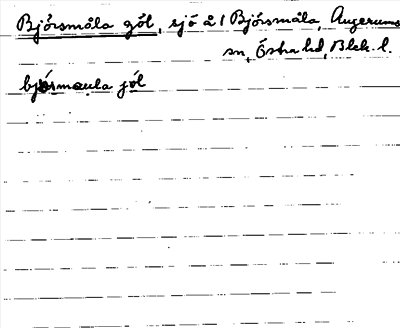 Bjórsmåla göl, sjö å 1 Bjórsmåla, Augerums
sn, Östra hd, Blek. l.
bjórsmaula jöl